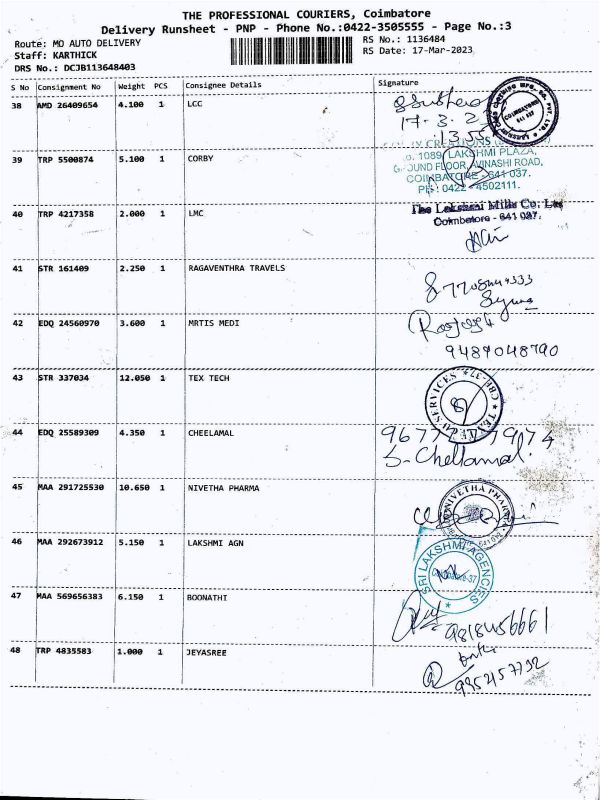 THE PROFESSIONAL COURIERS, Coimbatore
Delivery Runsheet - PNP - Phone No.:0422-3505555 - Page No.:3
Route: MO AUTO DELIVERY
RS No.: 1136484
Staff: KARTHICK
RS Date: 17-Mar-2023
DRS No.: DCJB113648403
S No Consignment No Weight PCS Consignee Details Signature
38 AMD 26409654 4.100 1 LCC
17-3-23
13.55
39 TRP 5500874 5.100 1 CORBY
CREATIONS
No. 1089, LAKSHMI PLAZA,
GROUND FLOOR, AVINASHI ROAD,
COIMBATORE - 641 037.
PH: 0422 - 4502111.
40 TRP 4217358 2.000 1 LMC
The Lakshmi Mills Co: Ltd
Coimbatore - 641 037.
41 STR 161409 2.250 1 RAGAVENTHRA TRAVELS
42 EDQ 24560970 3.600 1 MRTIS MEDI
9489048790
43 STR 337034 12.050 1 TEX TECH
SERVICES * CBE-37 *
44 EDQ 25589309 4.350 1 CHEELAMAL
S. Chellamal.
45 MAA 291725530 10.650 1 NIVETHA PHARMA
NIVETHA PHARMA
46 MAA 292673912 5.150 1 LAKSHMI AGN
SRI LAKSHMI AGENCIES
Coimbatore-37
47 MAA 569656383 6.150 1 BOONATHI
9818456661
48 TRP 4835583 1.000 1 JEYASREE
9952457792